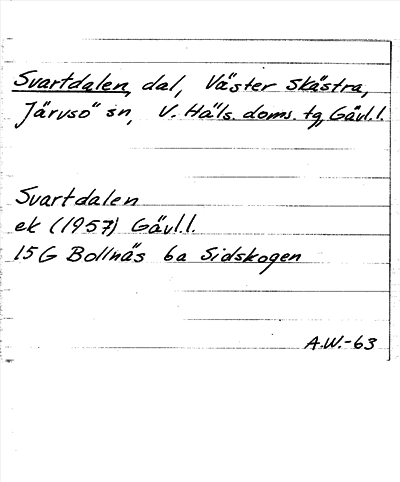 Svartdalen, dal, Väster Skästra,
Järvsö sn, V. Häls. doms. tg, Gävl.l.
Svartdalen
ek (1957) Gävl.l.
15G Bollnäs 6a Sidskogen
A.W.-63